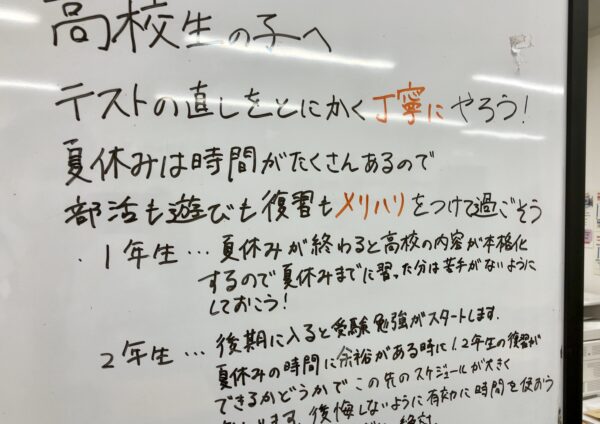 高校生の子へ
テストの直しをとにかく丁寧にやろう!
夏休みは時間がたくさんあるので
部活も遊びも復習もメリハリをつけて過ごそう
・1年生…夏休みが終わると高校の内容が本格化
するので夏休みまでに習った分は苦手がないように
しておこう!
2年生…後期に入ると受験勉強がスタートします.
夏休みの時間に余裕がある時に1.2年生の復習が
できるかどうかでこの先のスケジュールが大きく
ます.後悔しないように有効に時間を使おう